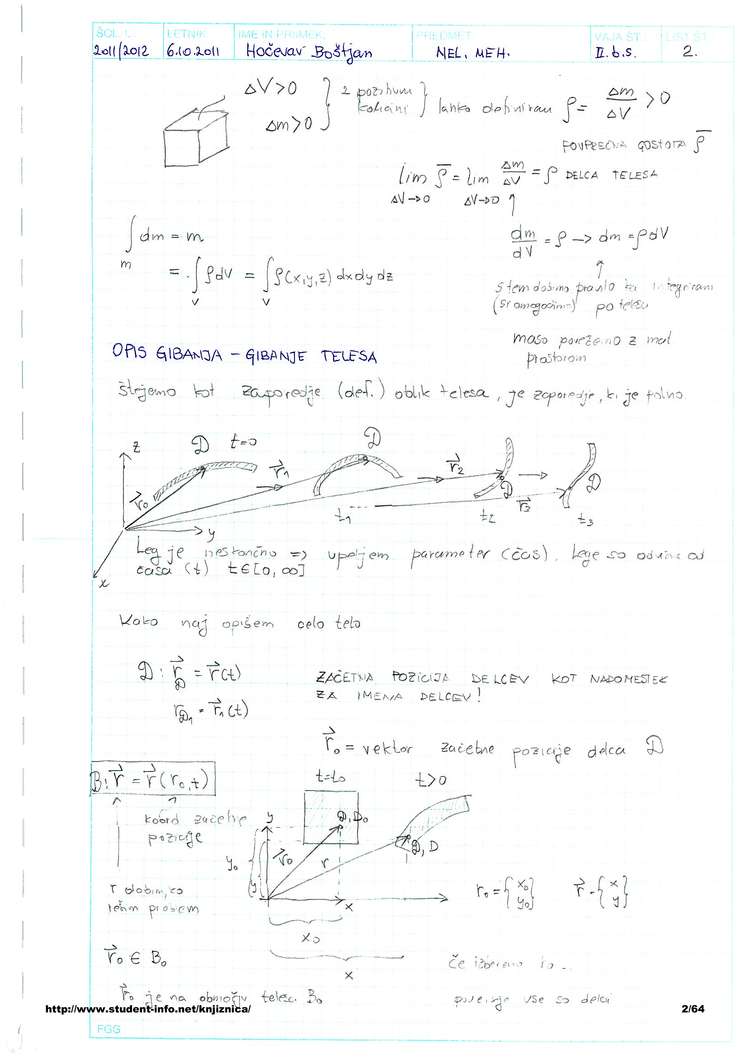 ŠOL. L. LETNIK IME IN PRIIMEK PREDMET VAJA ŠT. LIST ŠT.
2011/2012 6.10.2011 Hočevar Boštjan NEL. MEH. II. b.s. 2.
ΔV>0
Δm>0
2 pozitivni količini
lahko definiram ρ = Δm/ΔV > 0
POVPREČNA GOSTOTA ρ̅
lim ρ̅ = lim Δm/ΔV = ρ DELCA TELESA
ΔV→0 ΔV→0
∫ dm = m
m
dm/dV = ρ → dm = ρdV
= ∫ρdV = ∫ρ(x,y,z) dxdydz
V V
s tem dobimo pravilo integriram
po telesu
maso povežemo z
prostorom
OPIS GIBANJA – GIBANJE TELESA
Štejemo kot zaporedje (def.) oblik telesa, je zaporedje, ki je polno.
z D t=0 D
r⃗0 r⃗1 r⃗2 r⃗3 D D
t1 t2 t3
y
x
Lega je nestančno => vpeljem parameter (čas). Lege so odvisne od
časa (t) t∈[0,∞]
Kako naj opišem celo telo
D: r⃗D = r⃗(t)
rD1 = r⃗1(t)
ZAČETNA POZICIJA DELCEV KOT NADOMESTEK
ZA IMENA DELCEV!
r⃗0 = vektor začetne pozicije delca D
B: r⃗ = r⃗(r0,t)
t=t0 t>0
koord začetne
pozicije
y D,D0 D,D
y0 y r⃗0 r
x
x0
x
r dobim, ko
rešim problem
r0 = {x0 y0} r⃗ = {x y}
r⃗0 ∈ B0
Če izberemo to ..
r⃗0 je na območju telesa B0
vse so delci
http://www.student-info.net/knjiznica/ 2/64
FGG